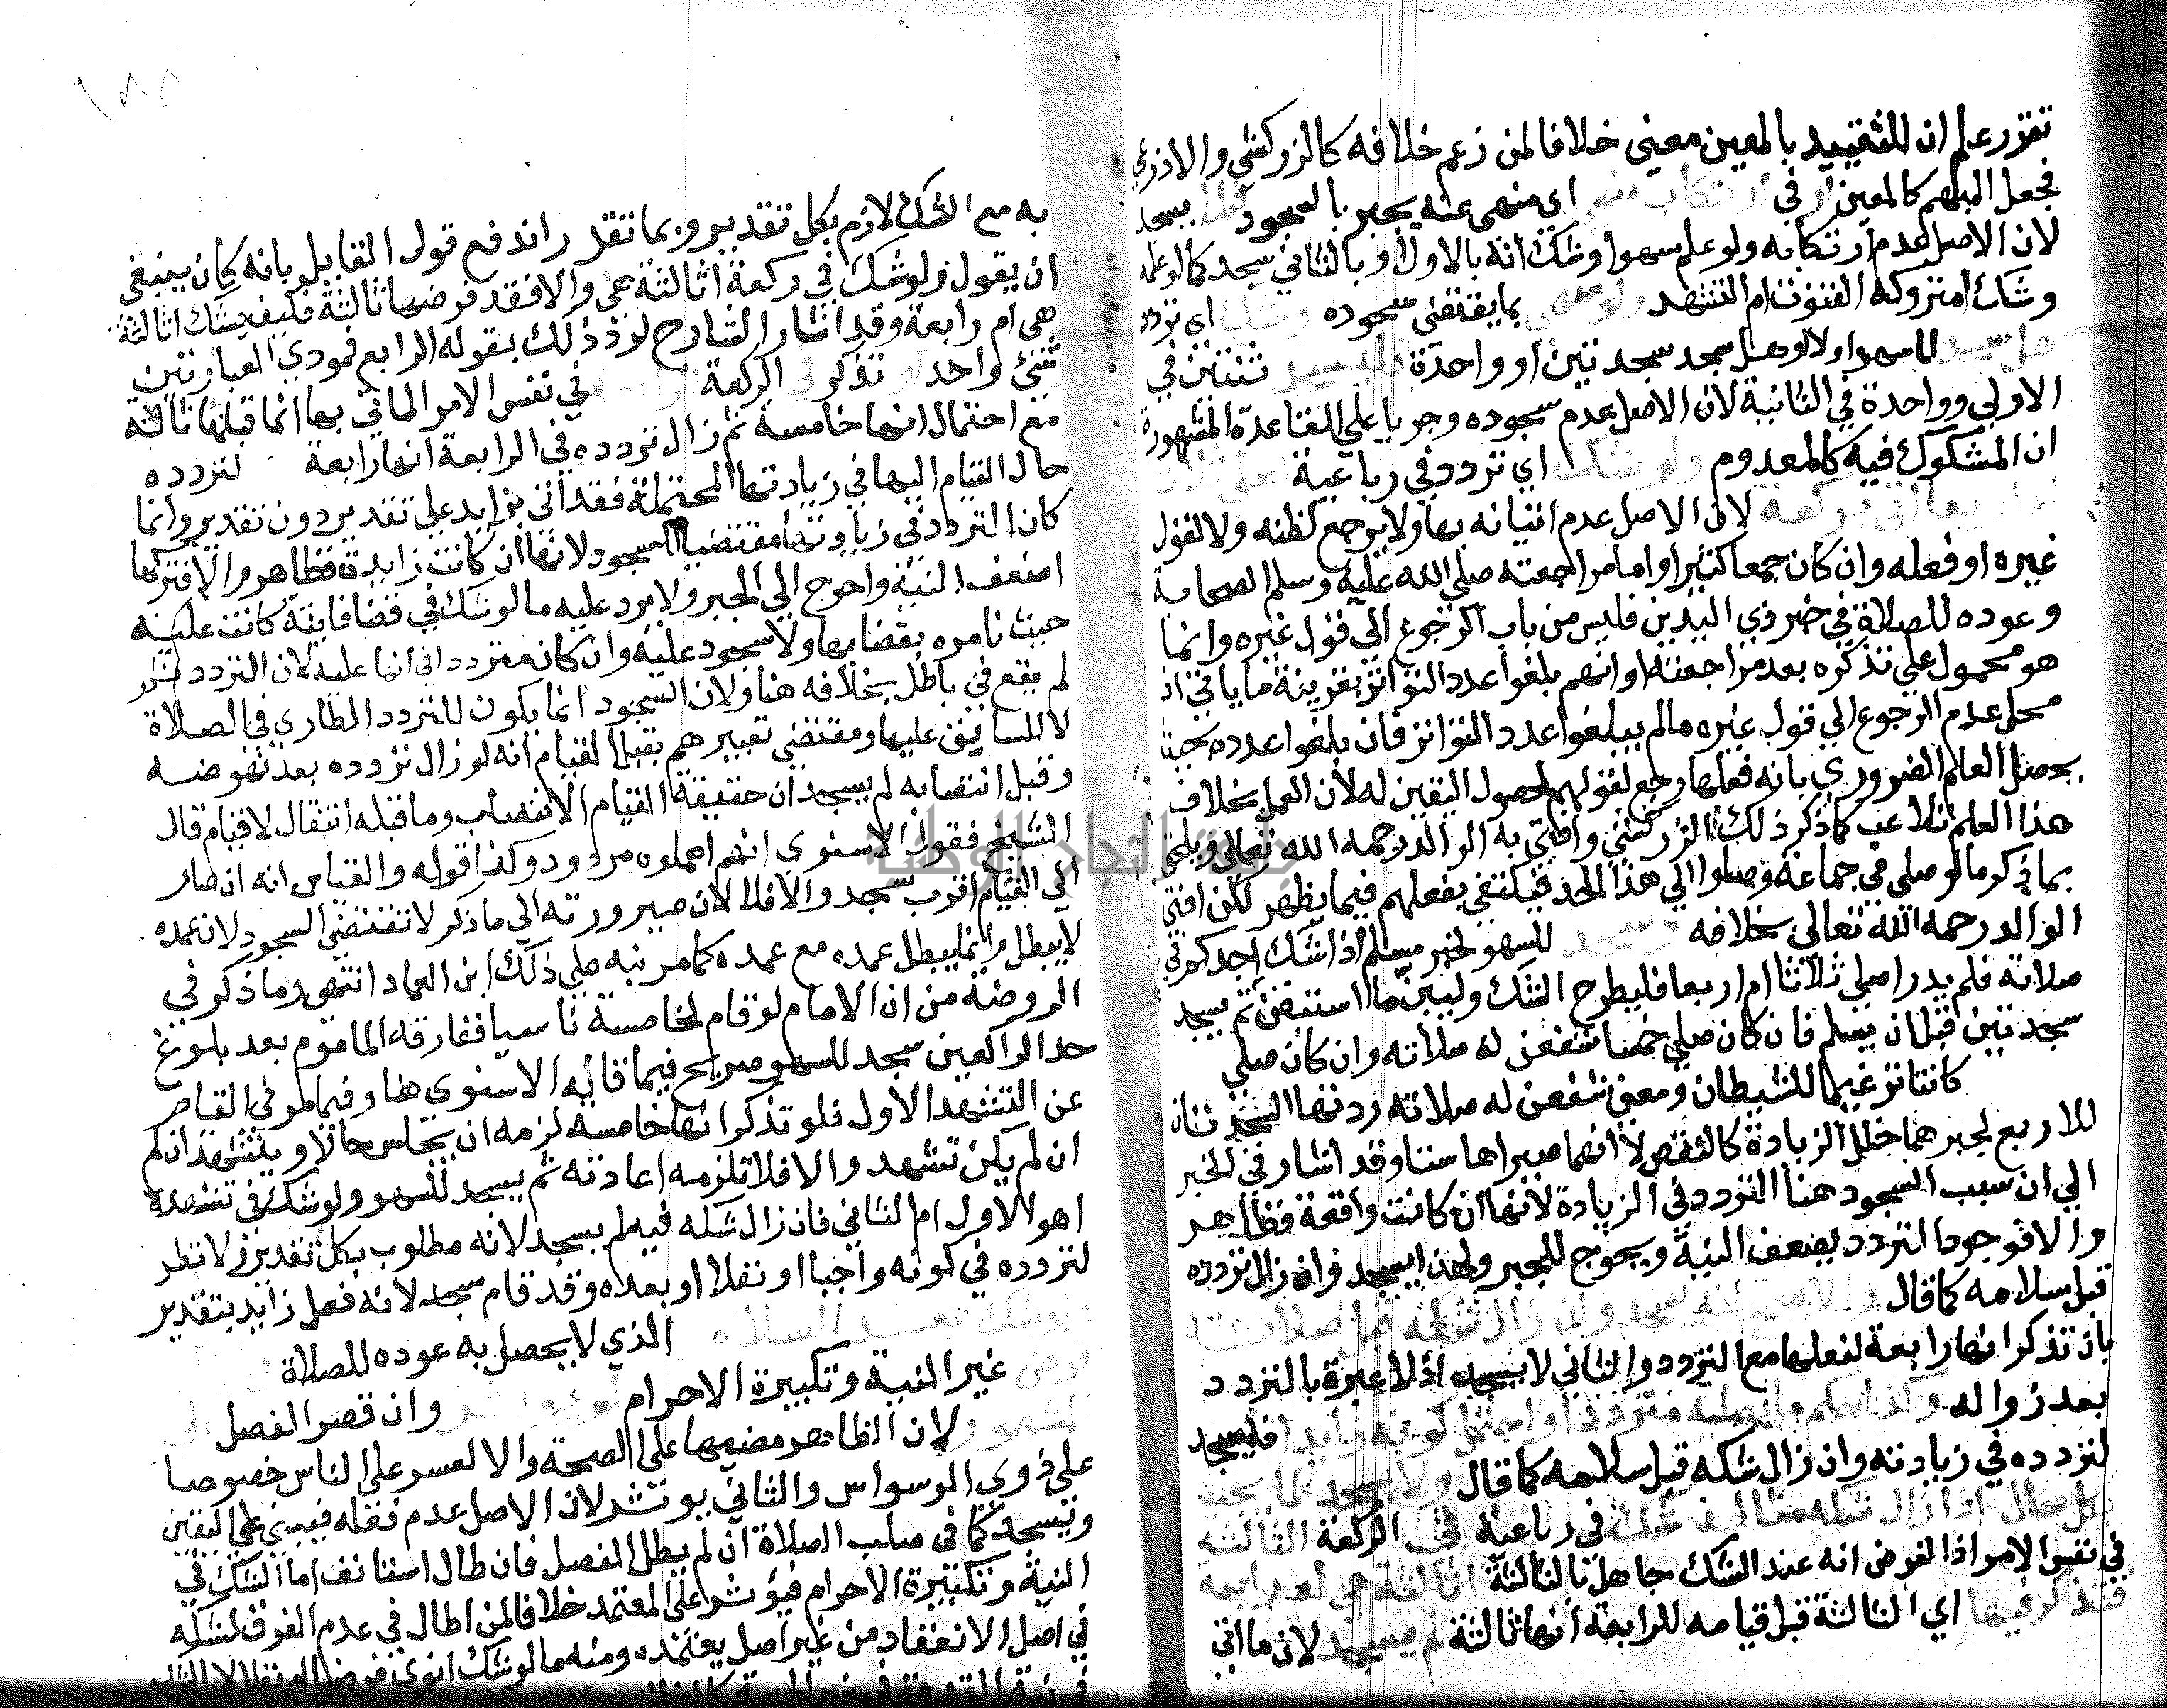 تقرر علم ان للتقييد بالمعين معنى خلافا لمن زعم خلافه كالزركشي والاذرعي
فجعل المبهم كالمعين او في ارتكاب منهي اي منهي عنه يجبر بالسجود فلا يسجد
لان الاصل عدم ارتكابه ولو علم سهوا وشك انه بالاول او بالثاني سجد كما لو علمه
وشك امتروكه القنوت ام التشهد ولو سهى بما يقتضي سجوده وشك اي تردد
هل سجد للسهو اولا او هل سجد سجدتين او واحدة فليسجد ثنتين في
الاولى وواحدة في الثانية لان الاصل عدم سجوده وجريا على القاعدة المشهورة
ان المشكوك فيه كالمعدوم ولو شك اي تردد في رباعية
لان الاصل عدم اتيانه بها ولا يرجع لظنه ولا لقول
غيره او فعله وان كان جمعا كثيرا واما مراجعته صلى الله عليه وسلم الصحابة
وعوده للصلاة في خبر ذي اليدين فليس من باب الرجوع الى قول غيره وانما
هو محمول على تذكره بعد مراجعته او انهم بلغوا عدد التواتر بقرينة ما ياتي اذ
محل عدم الرجوع الى قول غيره ما لم يبلغوا عدد التواتر فان بلغوا عدده بحيث
يحصل العلم الضروري بانه فعلها رجع لقولهم لحصول اليقين له لان العمل بخلاف
هذا العلم تلاعب كما ذكر ذلك الزركشي وافتى به الوالد رحمه الله تعالى ويلحق
بما ذكر ما لو صلى في جماعة وصلوا الى هذا الحد فيكتفي بفعلهم فيما يظهر لكن افتى
الوالد رحمه الله تعالى بخلافه ويسجد للسهو لخبر مسلم اذا شك احدكم في
صلاته فلم يدر اصلى ثلاثا ام اربعا فليطرح الشك وليبن على ما استيقن ثم يسجد
سجدتين قبل ان يسلم فان كان صلى خمسا شفعن له صلاته وان كان صلى
كانتا ترغيما للشيطان ومعنى شفعن له صلاته ردتها السجدتان
للاربع لجبرهما خلل الزيادة كالنقص لا انهما صيراها ستا وقد اشار في الخبر
الى ان سبب السجود هنا التردد في الزيادة لانها ان كانت واقعة فظاهر
والا فوجود التردد يضعف النية ويحوج للجبر ولهذا يسجد وان زال تردده
قبل سلامه كما قال والاصح انه يسجد وان زال شكه قبل سلامه
بان تذكر انها رابعة لفعلها مع التردد والثاني لا يسجد اذ لا عبرة بالتردد
بعد زواله وكذا حكم ما يصليه مترددا واحتمل كونه زايدا فليسجد
لتردده في زيادته وان زال شكه قبل سلامه كما قال ولا يسجد لما يجب
بكل حال اذا زال شكه مثاله شك في رباعية في الركعة الثالثة
في نفس الامر اذ الفرض انه عند الشك جاهل بالثالثة اثالثة هي ام رابعة
فتذكر فيها اي الثالثة قبل قيامه للرابعة انها ثالثة لم يسجد لان ما اتى
به مع الشك لازم بكل تقدير وبما تقرر اندفع قول القايل بانه كان ينبغي
ان يقول ولو شك في ركعة اثالثة هي والا فقد فرضها ثالثة فكيف يشك اثالثة
هي ام رابعة وقد اشار الشارح لرد ذلك بقوله الرابع فمودى العبارتين
شئ واحد او تذكر في الركعة في نفس الامر الماتي بها انما قبلها ثالثة
مع احتمال انها خامسة ثم زال تردده في الرابعة انها رابعة لتردده
حال القيام اليها في زيادتها المحتملة فقد اتى بزايد على تقدير دون تقدير وانما
كان التردد في زيادتها مقتضيا للسجود لانها ان كانت زايدة فظاهر والا فتركها
اضعف النية واحوج الى الجبر ولا يرد عليه ما لو شك في قضا فايتة كانت عليه
حيث نامره بقضايها ولا سجود عليه وان كان مترددا في انها عليه لان التردد
لم يقع في باطل بخلافه هنا ولان السجود انما يكون للتردد الطاري في الصلاة
لا للسابق عليها ومقتضى تعبيرهم بقبل القيام انه لو زال تردده بعد نهوضه
وقبل انتصابه لم يسجد ان حقيقة القيام الانتصاب وما قبله انتقال لا قيام قال
الشيخ فقول الاسنوي انهم اهملوه مردود وكذا قوله والقياس انه ان صار
الى القيام اقرب سجد والا فلا لان صيرورته الى ما ذكر لا تقتضي السجود لان عمده
لا يبطل وانما يبطل عمده مع عوده كما مر نبه على ذلك ابن العماد انتهى وما ذكر في
الروضة من ان الامام لو قام لخامسة ناسيا ففارقه الماموم بعد بلوغ
حد الراكعين سجد للسهو صريح فيما قاله الاسنوي هنا وفيما مر في القاصر
عن التشهد الاول فلو تذكر انها خامسة لزمه ان يجلس حالا ويتشهد ان لم
ان لم يكن تشهد والا فلا تلزمه اعادته ثم يسجد للسهو ولو شك في تشهده
اهو الاول ام الثاني فان زال شكه فيه لم يسجد لانه مطلوب بكل تقدير ولا نظر
لتردده في كونه واجبا او نفلا او بعده وقد قام سجد لانه فعل زايد بتقدير
ولو شك بعد السلام الذي لا يحصل به عوده للصلاة
فرض غير النية وتكبيرة الاحرام لم يؤثر وان قصر الفصل
المشهور لان الظاهر مضيها على الصحة والا لعسر على الناس خصوصا
على ذوي الوسواس والثاني يوثر لان الاصل عدم فعله فيبني على اليقين
ويسجد كما في صلب الصلاة ان لم يطل الفصل فان طال استانف اما الشك في
النية وتكبيرة الاحرام فيؤثر على المعتمد خلافا لمن اطال في عدم الفرق لشكه
في اصل الانعقاد من غير اصل يعتمده ومنه ما لو شك انوى فرضا ام نفلا لا الشك